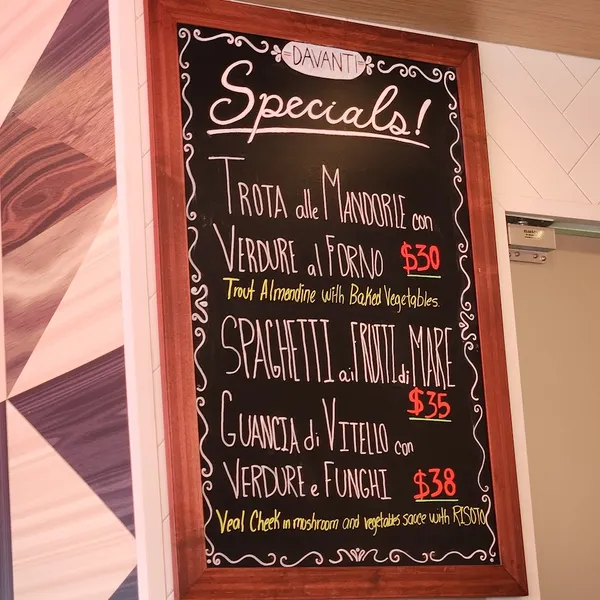 DAVANTI
Specials!
TROTA alle MANDORLE con
VERDURE al FORNO $30
Trout Almendine with Baked Vegetables.
SPAGHETTI ai FRUTTI di MARE
$35
GUANCIA di VITELLO con
VERDURE e FUNGHI $38
Veal Cheek in moshroom and vegetables sauce with RISOTO